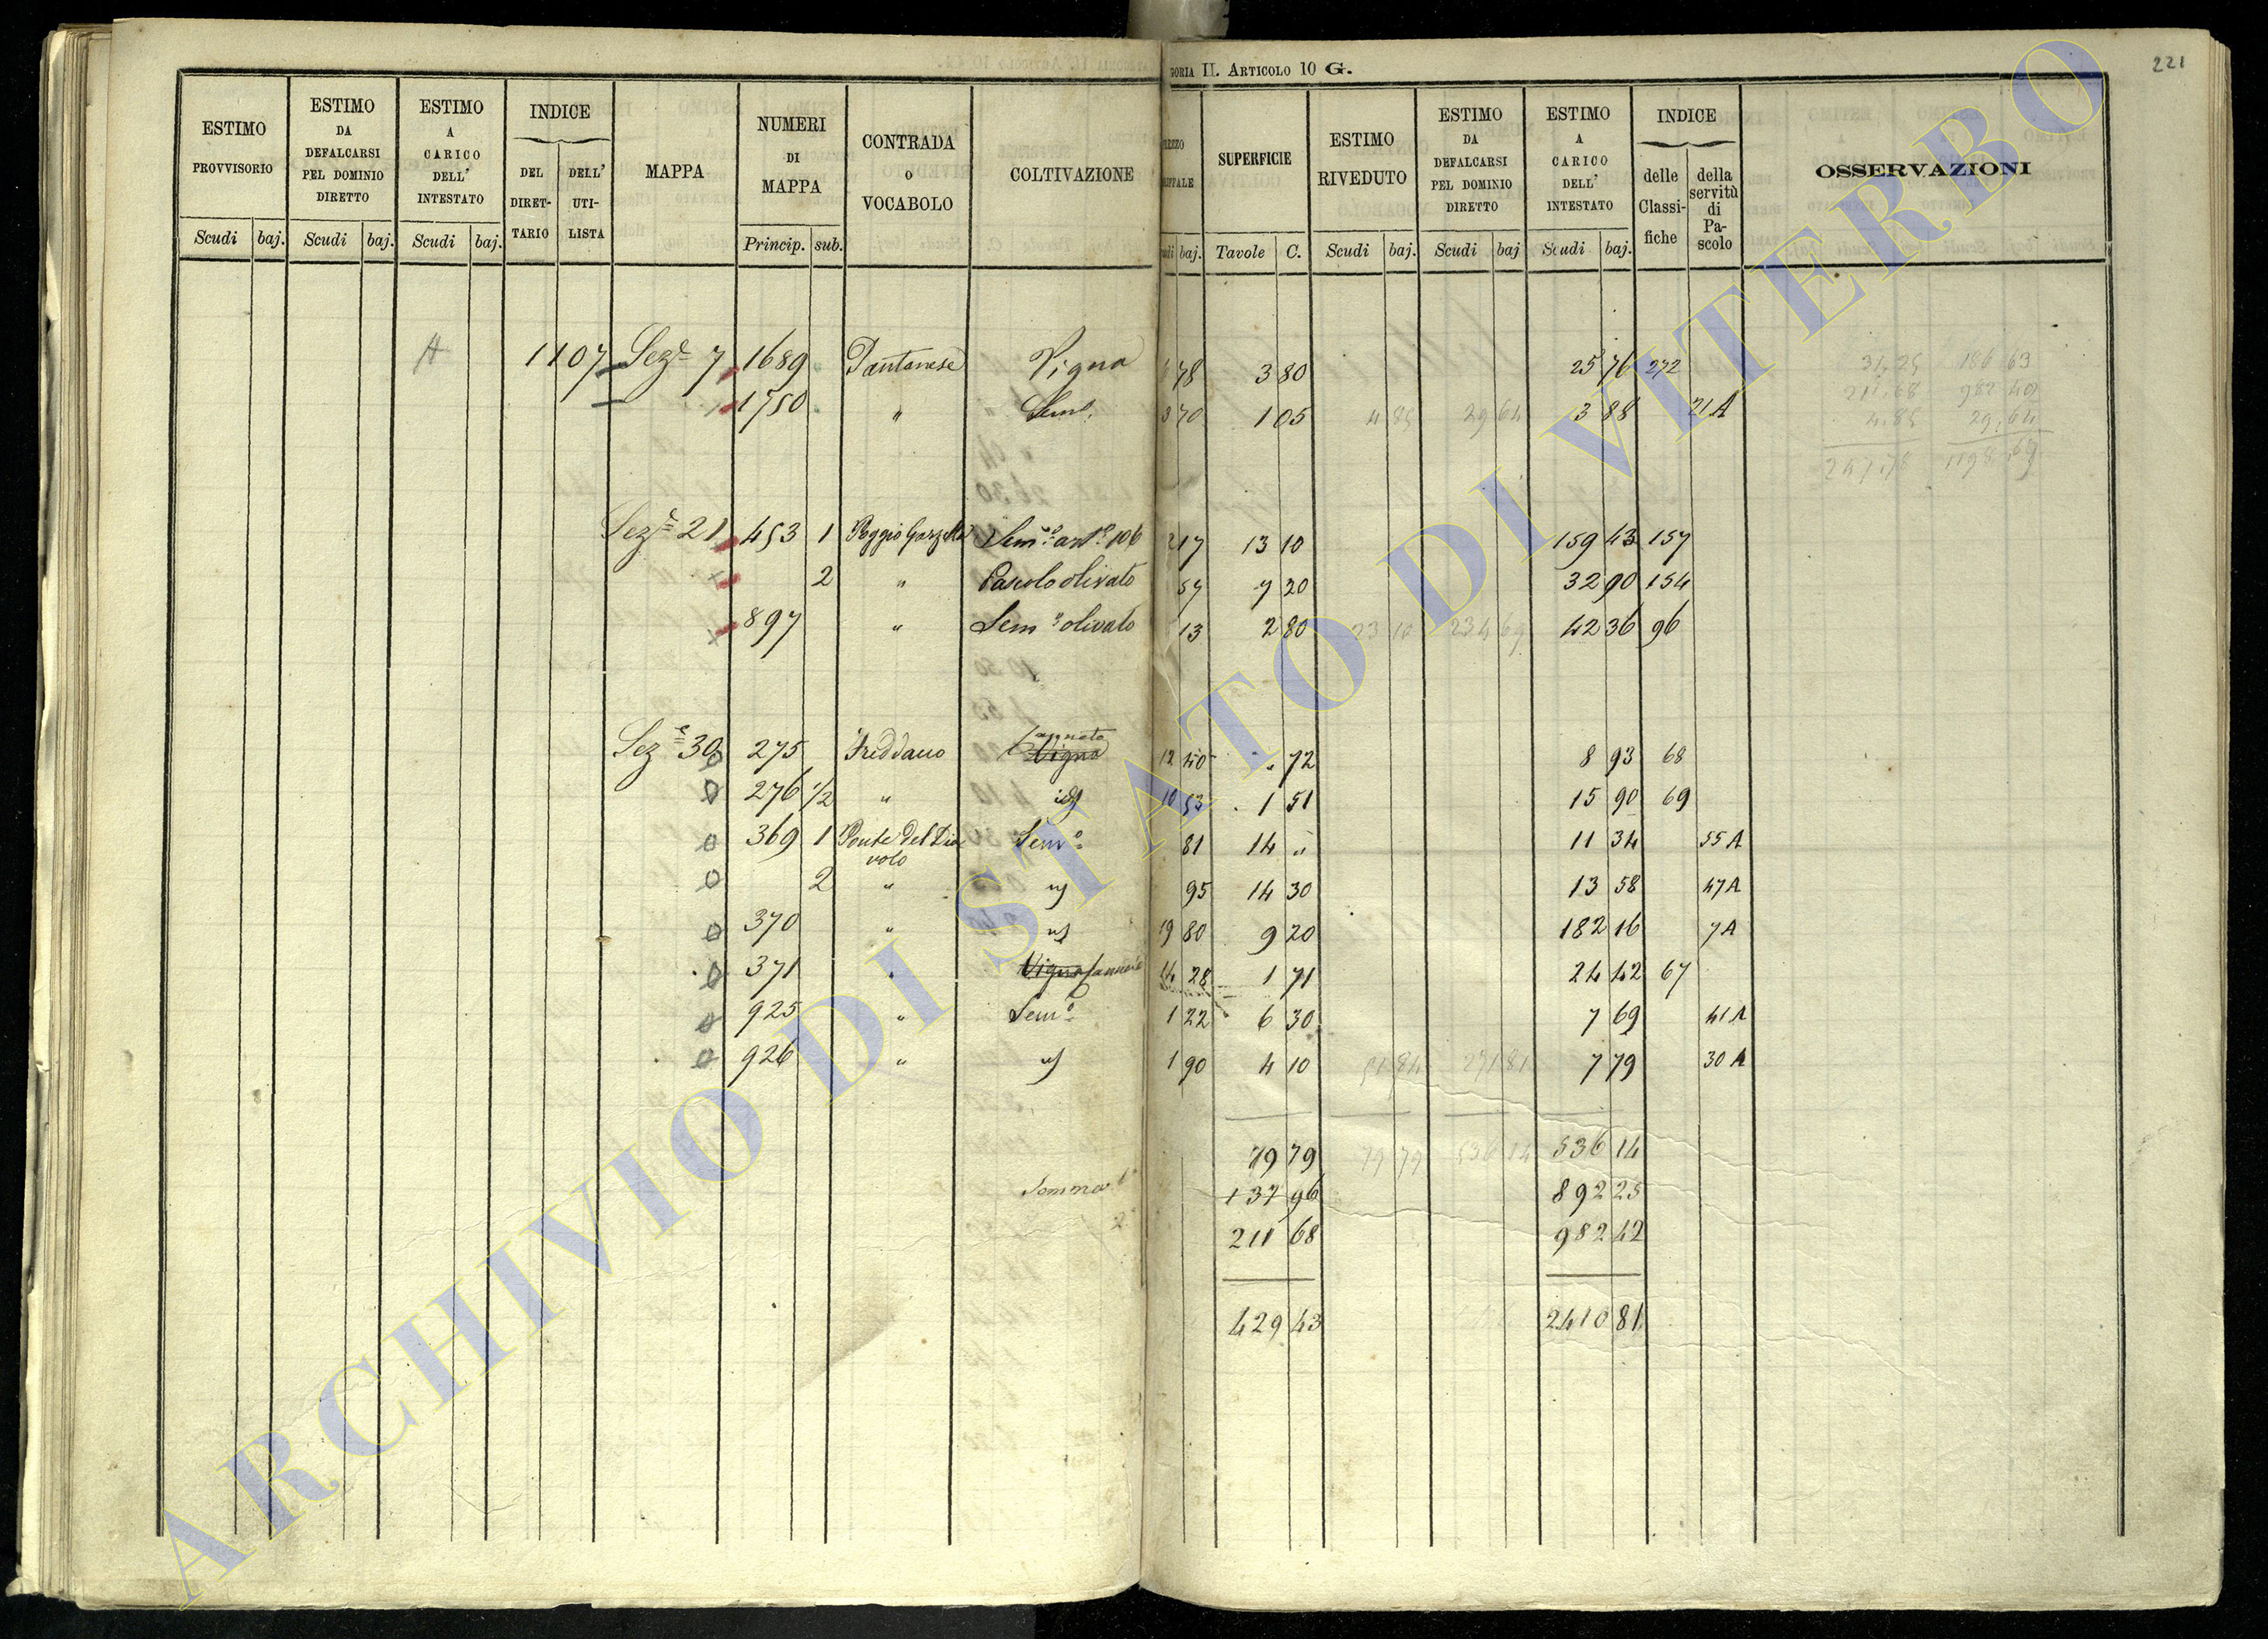 GORIA II. ARTICOLO 10 G.
221
ESTIMO PROVVISORIO
ESTIMO DA DEFALCARSI PEL DOMINIO DIRETTO
ESTIMO A CARICO DELL' INTESTATO
INDICE
DEL DIRET-TARIO
DELL' UTI-LISTA
MAPPA
NUMERI DI MAPPA
CONTRADA O VOCABOLO
COLTIVAZIONE
SUPERFICIE
ESTIMO RIVEDUTO
ESTIMO DA DEFALCARSI PEL DOMINIO DIRETTO
ESTIMO A CARICO DELL' INTESTATO
INDICE
delle Classi-fiche
della servitù di Pa-scolo
OSSERVAZIONI
Scudi baj. Scudi baj. Scudi baj. Princip. sub. baj. Tavole C. Scudi baj. Scudi baj Scudi baj.
1107 Sez.e 7 1689 Pantanese Vigna 78 3 80 25 76 272
1750 " Sem.o 70 1 05 4 85 29 64 3 88 21 A
Sez.e 21 453 1 Poggio Garzella Sem.o 17 13 10 159 43 157
2 " Pascolo olivato 57 7 20 32 90 154
897 " Sem.o olivato 13 2 80 23 10 234 69 42 36 96
Sez.e 30 275 Freddano Vigna 12 40 " 72 8 93 68
276 1/2 " id 10 53 1 51 15 90 69
369 1 Ponte del Dia volo Sem.o 81 14 " 11 34 55 A
2 " id 95 14 30 13 58 47 A
370 " id 19 80 9 20 182 16 7 A
371 " Vigna Canneto 14 28 1 71 24 42 67
925 " Sem.o 1 22 6 30 7 69 41 A
926 " id 1 90 4 10 51 84 271 81 7 79 30 A
79 79 79 79 536 14 536 14
Somma 137 96 892 25
2 211 68 982 42
429 43 2410 81
31,25 186 63
211,68 982 40
4,85 29,64
247,78 1198,69
ARCHIVIO DI STATO DI VITERBO